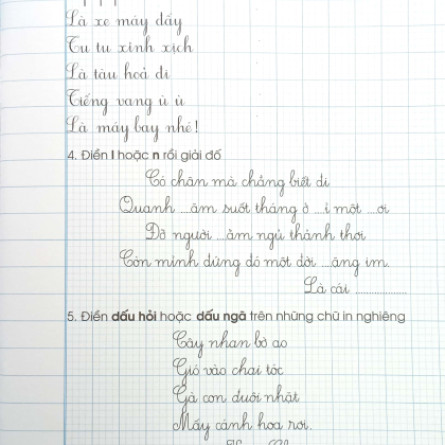 Là xe máy đấy
Tu tu xình xịch
Là tàu hoả đi
Tiếng vang ù ù
Là máy bay nhé!
4. Điền l hoặc n rồi giải đố
Có chân mà chẳng biết đi
Quanh ...ăm suốt tháng ở ...ì một ...ơi
Đỡ người ...ằm ngủ thảnh thơi
Còn mình đứng đó một đời ...ặng im.
Là cái ..................
5. Điền dấu hỏi hoặc dấu ngã trên những chữ in nghiêng
Cây nhan bờ ao
Gió vào chai tóc
Gà con đuôi nhặt
Mấy cánh hoa rơi.